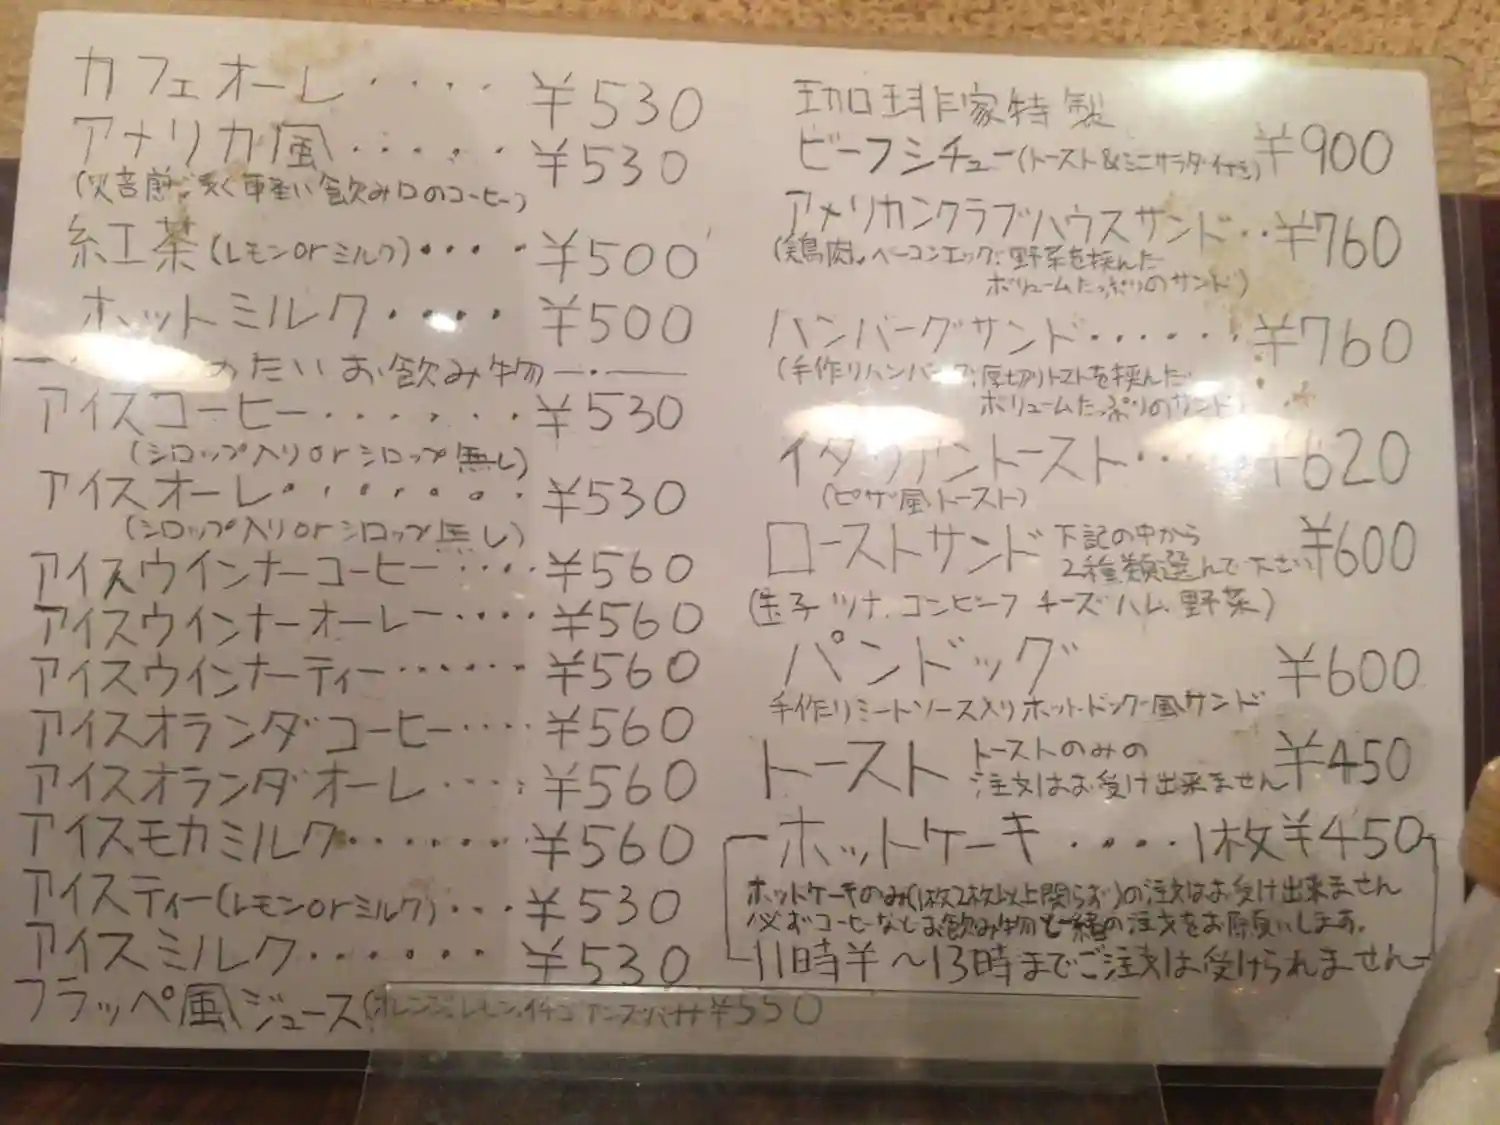 カフェオーレ・・・・¥530
アメリカ風・・・・・¥530
(浅く軽い飲み口のコーヒー)
紅茶(レモンorミルク)・・・・¥500
ホットミルク・・・・¥500
たいお飲み物
アイスコーヒー・・・・・・¥530
(シロップ入りorシロップ無し)
アイスオーレ・・・・・・・¥530
(シロップ入りorシロップ無し)
アイスウインナーコーヒー・・・・¥560
アイスウインナーオーレー・・・・¥560
アイスウインナーティー・・・・・・¥560
アイスオランダコーヒー・・・・¥560
アイスオランダオーレ・・・・¥560
アイスモカミルク・・・・・・・¥560
アイスティー(レモンorミルク)・・・¥530
アイスミルク・・・・・・・¥530
フラッペ風ジュース(オレンジ、レモン、イチゴ ¥550
珈琲家特製
ビーフシチュー(トースト&ミニサラダ付き)¥900
アメリカンクラブハウスサンド・・¥760
(鶏肉、ベーコンエッグ、野菜を挟んだ
ボリュームたっぷりのサンド)
ハンバーグサンド・・・・・・¥760
(手作りハンバーグ、厚切りトーストを挟んだ
ボリュームたっぷりのサンド)
イタリアントースト・・・¥620
(ピザ風トースト)
ローストサンド 下記の中から ¥600
2種類選んで下さい
(玉子 ツナ、コンビーフ チーズ ハム、野菜)
パンドッグ ¥600
手作りミートソース入りホットドック風サンド
トースト トーストのみの ¥450
注文はお受け出来ません
ホットケーキ・・・・1枚¥450
ホットケーキのみ(1枚2枚以上関らず)の注文はお受け出来ません
必ずコーヒーなどお飲み物と一緒の注文をお願いします。
11時半〜13時までご注文は受けられません